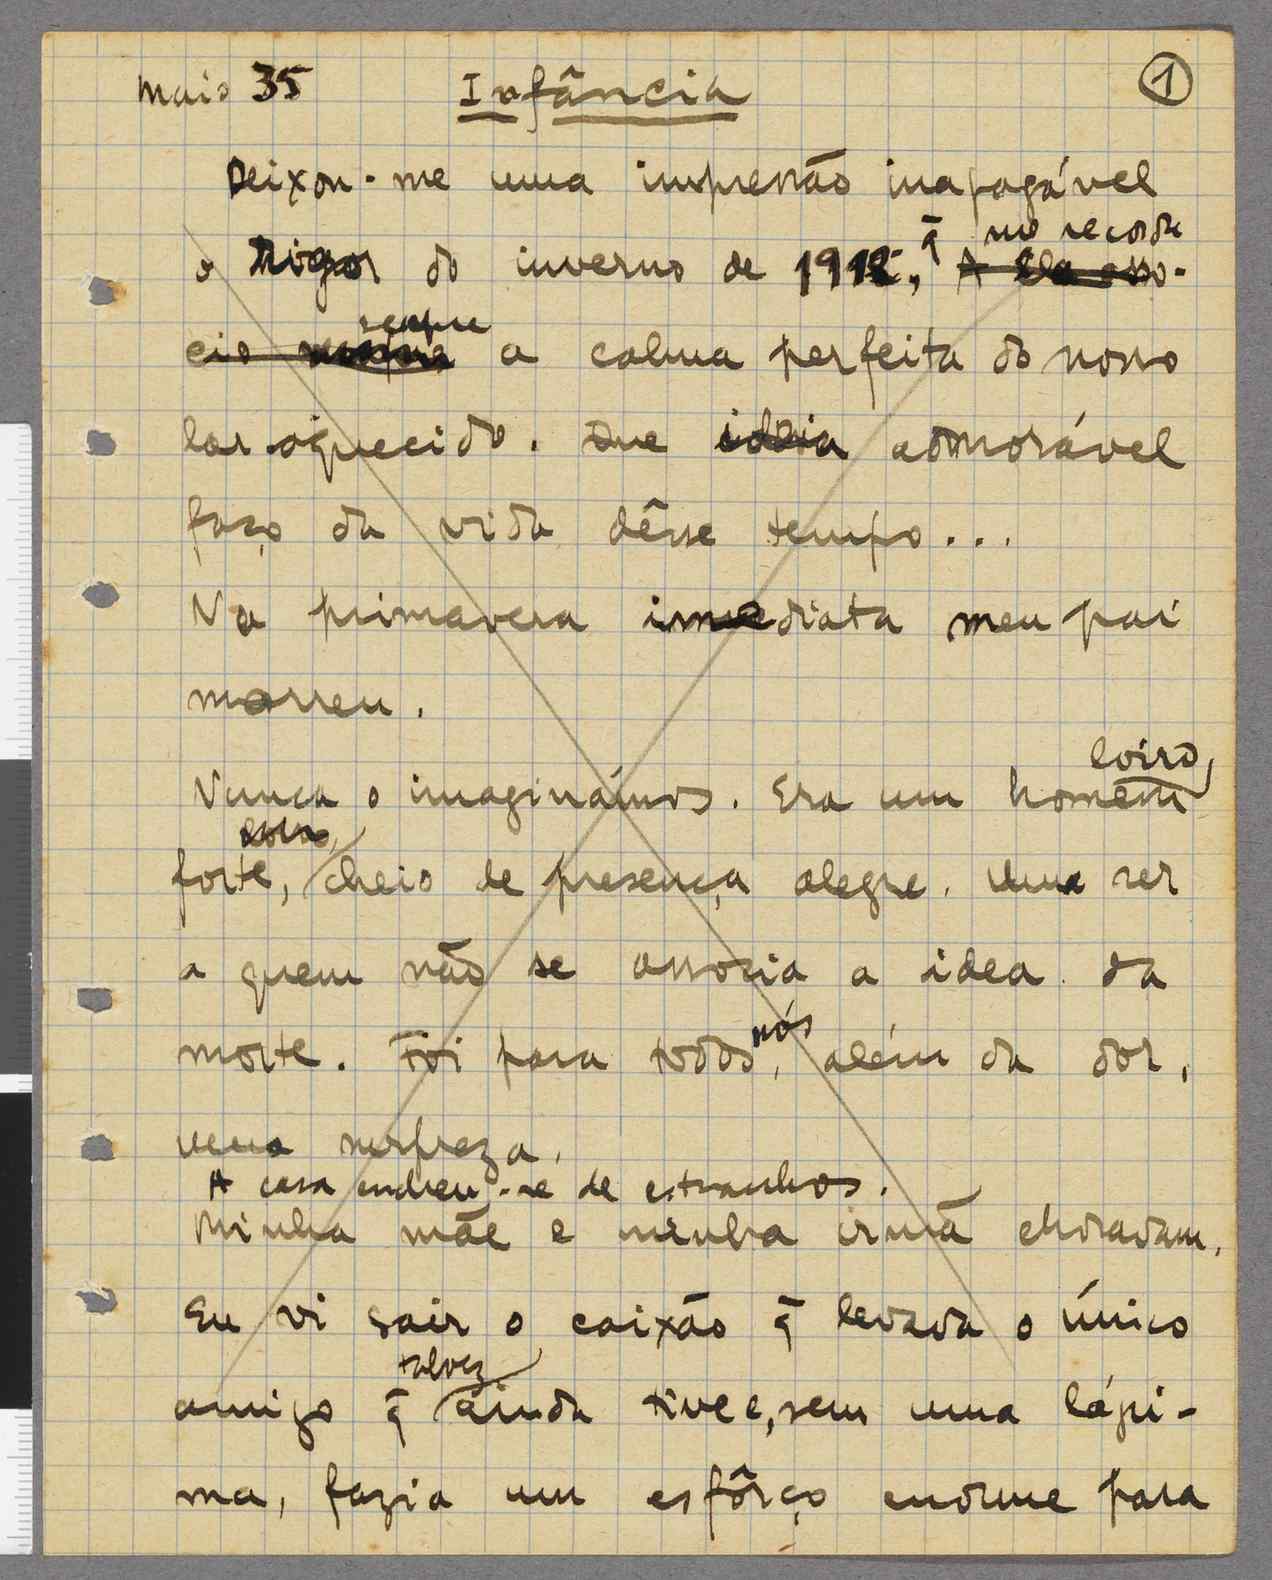 Maio 35 Infância 1
Deixou-me uma impressão inapagável
q̃ me recorda
o rigor do inverno de 1912, A ela asso-
sempre
cio sempre a calma perfeita do nosso
lar aquecido. Que ideia admorável
faço da vida dêsse tempo...
Na primavera imediata meu pai
morreu.
loiro,
Nunca o imagináramos. Era um homem
loiro,
forte, cheio de presença alegre. Um ser
a quem não se associa a idea da
nós
morte. Foi para todos, além da dor,
uma surpreza.
A casa encheu-se de estranhos.
Minha mãe e minha irmã choravam.
Eu vi sair o caixão q̃ levava o único
talvez
amigo q̃ ainda tive e, sem uma lágri-
ma, fazia um esfôrço enorme para